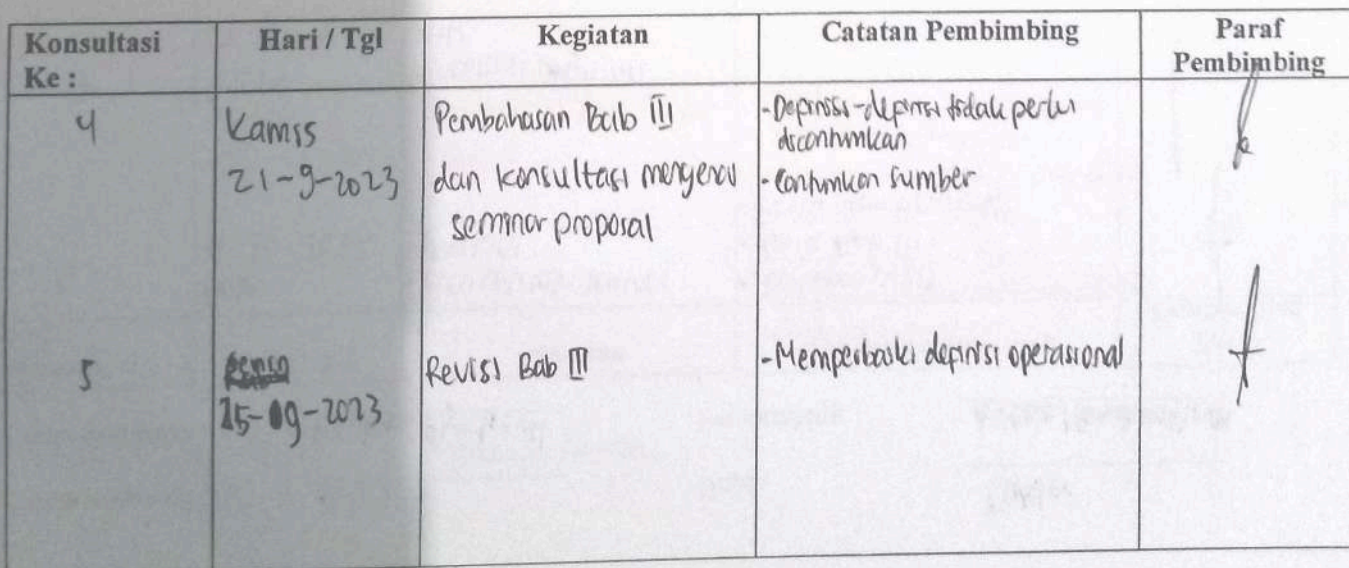 Konsultasi Ke :
Hari / Tgl
Kegiatan
Catatan Pembimbing
Paraf Pembimbing
4
Kamis
21-9-2023
Pembahasan Bab III
dan konsultasi mengenai
seminar proposal
-Depinisi-depinisi tidak perlu
dicantumkan
-Cantumkan sumber
5
25-09-2023
Revisi Bab III
-Memperbaiki depinisi operasional